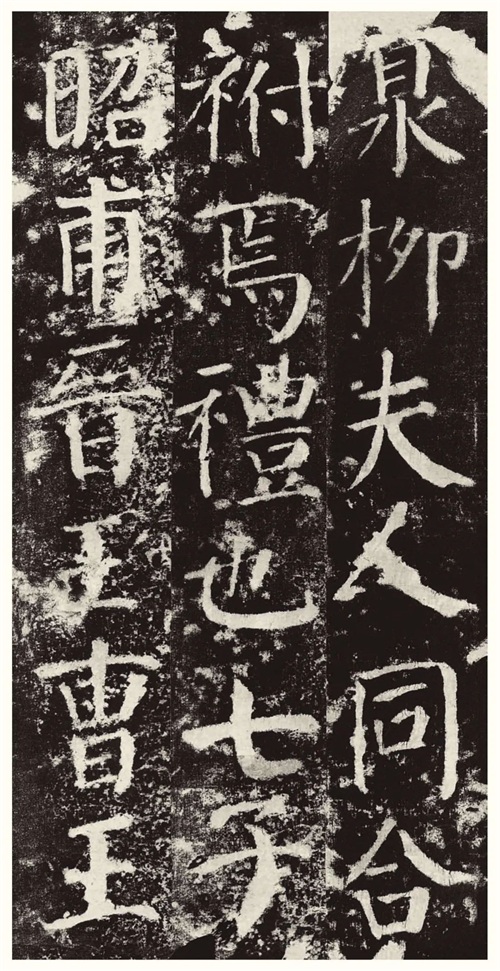 泉柳夫人同合
祔焉禮也七子
昭甫晉王曹王